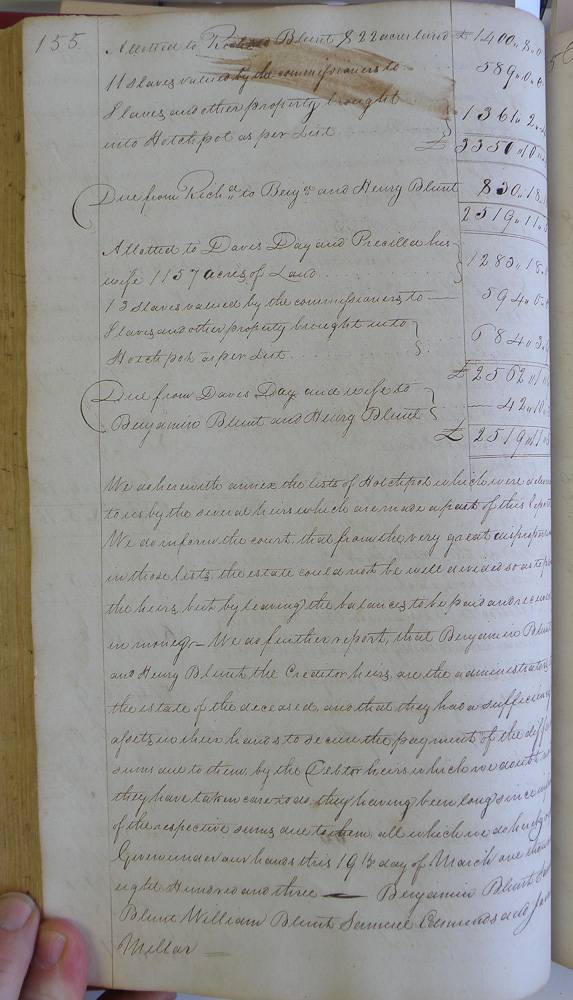 155
Allotted to Richard Blunt 822 acres land £ 1400..8..0
11 Slaves valued by the commissioners to 589..0..0
Slaves and other property brought
into Hotchpot as per List } 1361..2..
£ 3350..10..
Due from Richd. to Benjn. and Henry Blunt 830..18..
2519..11..
Allotted to Davis Day and Precilla his
wife 1157 acres of Land } 1283..18..
13 Slaves valued by the commissioners to — 594..0..
Slaves and other property brought into
Hotchpot as per List } 684..3..
£ 2562..1..
Due from Davis Day and wife to
Benjamin Blunt and Henry Blunt } — 42..10..
£ 2519..11..
We do herewith annex the lists of Hotchpot which were
to us by the several heirs which are made a part of this Report
We do inform the court, that from the very great disproportion
in those lists, the estate could not be well divided so as to
the heirs, but by leaving the balances to be paid and received
in money — We do further report, that Benjamin Blunt
and Henry Blunt the Creditor heirs, are the administrators
the estate of the deceased, and that they had a sufficiency
assets in their hands to secure the payment of the
sums due to them, by the Debtor heirs which we doubt
they have taken care to do, they having been long since
of the respective sums due to them, all which we do hereby
Given under our hands this 19th day of March one
eight Hundred and three — Benjamin Blunt
Blunt William Blunt Samuel Edmunds
Millar —